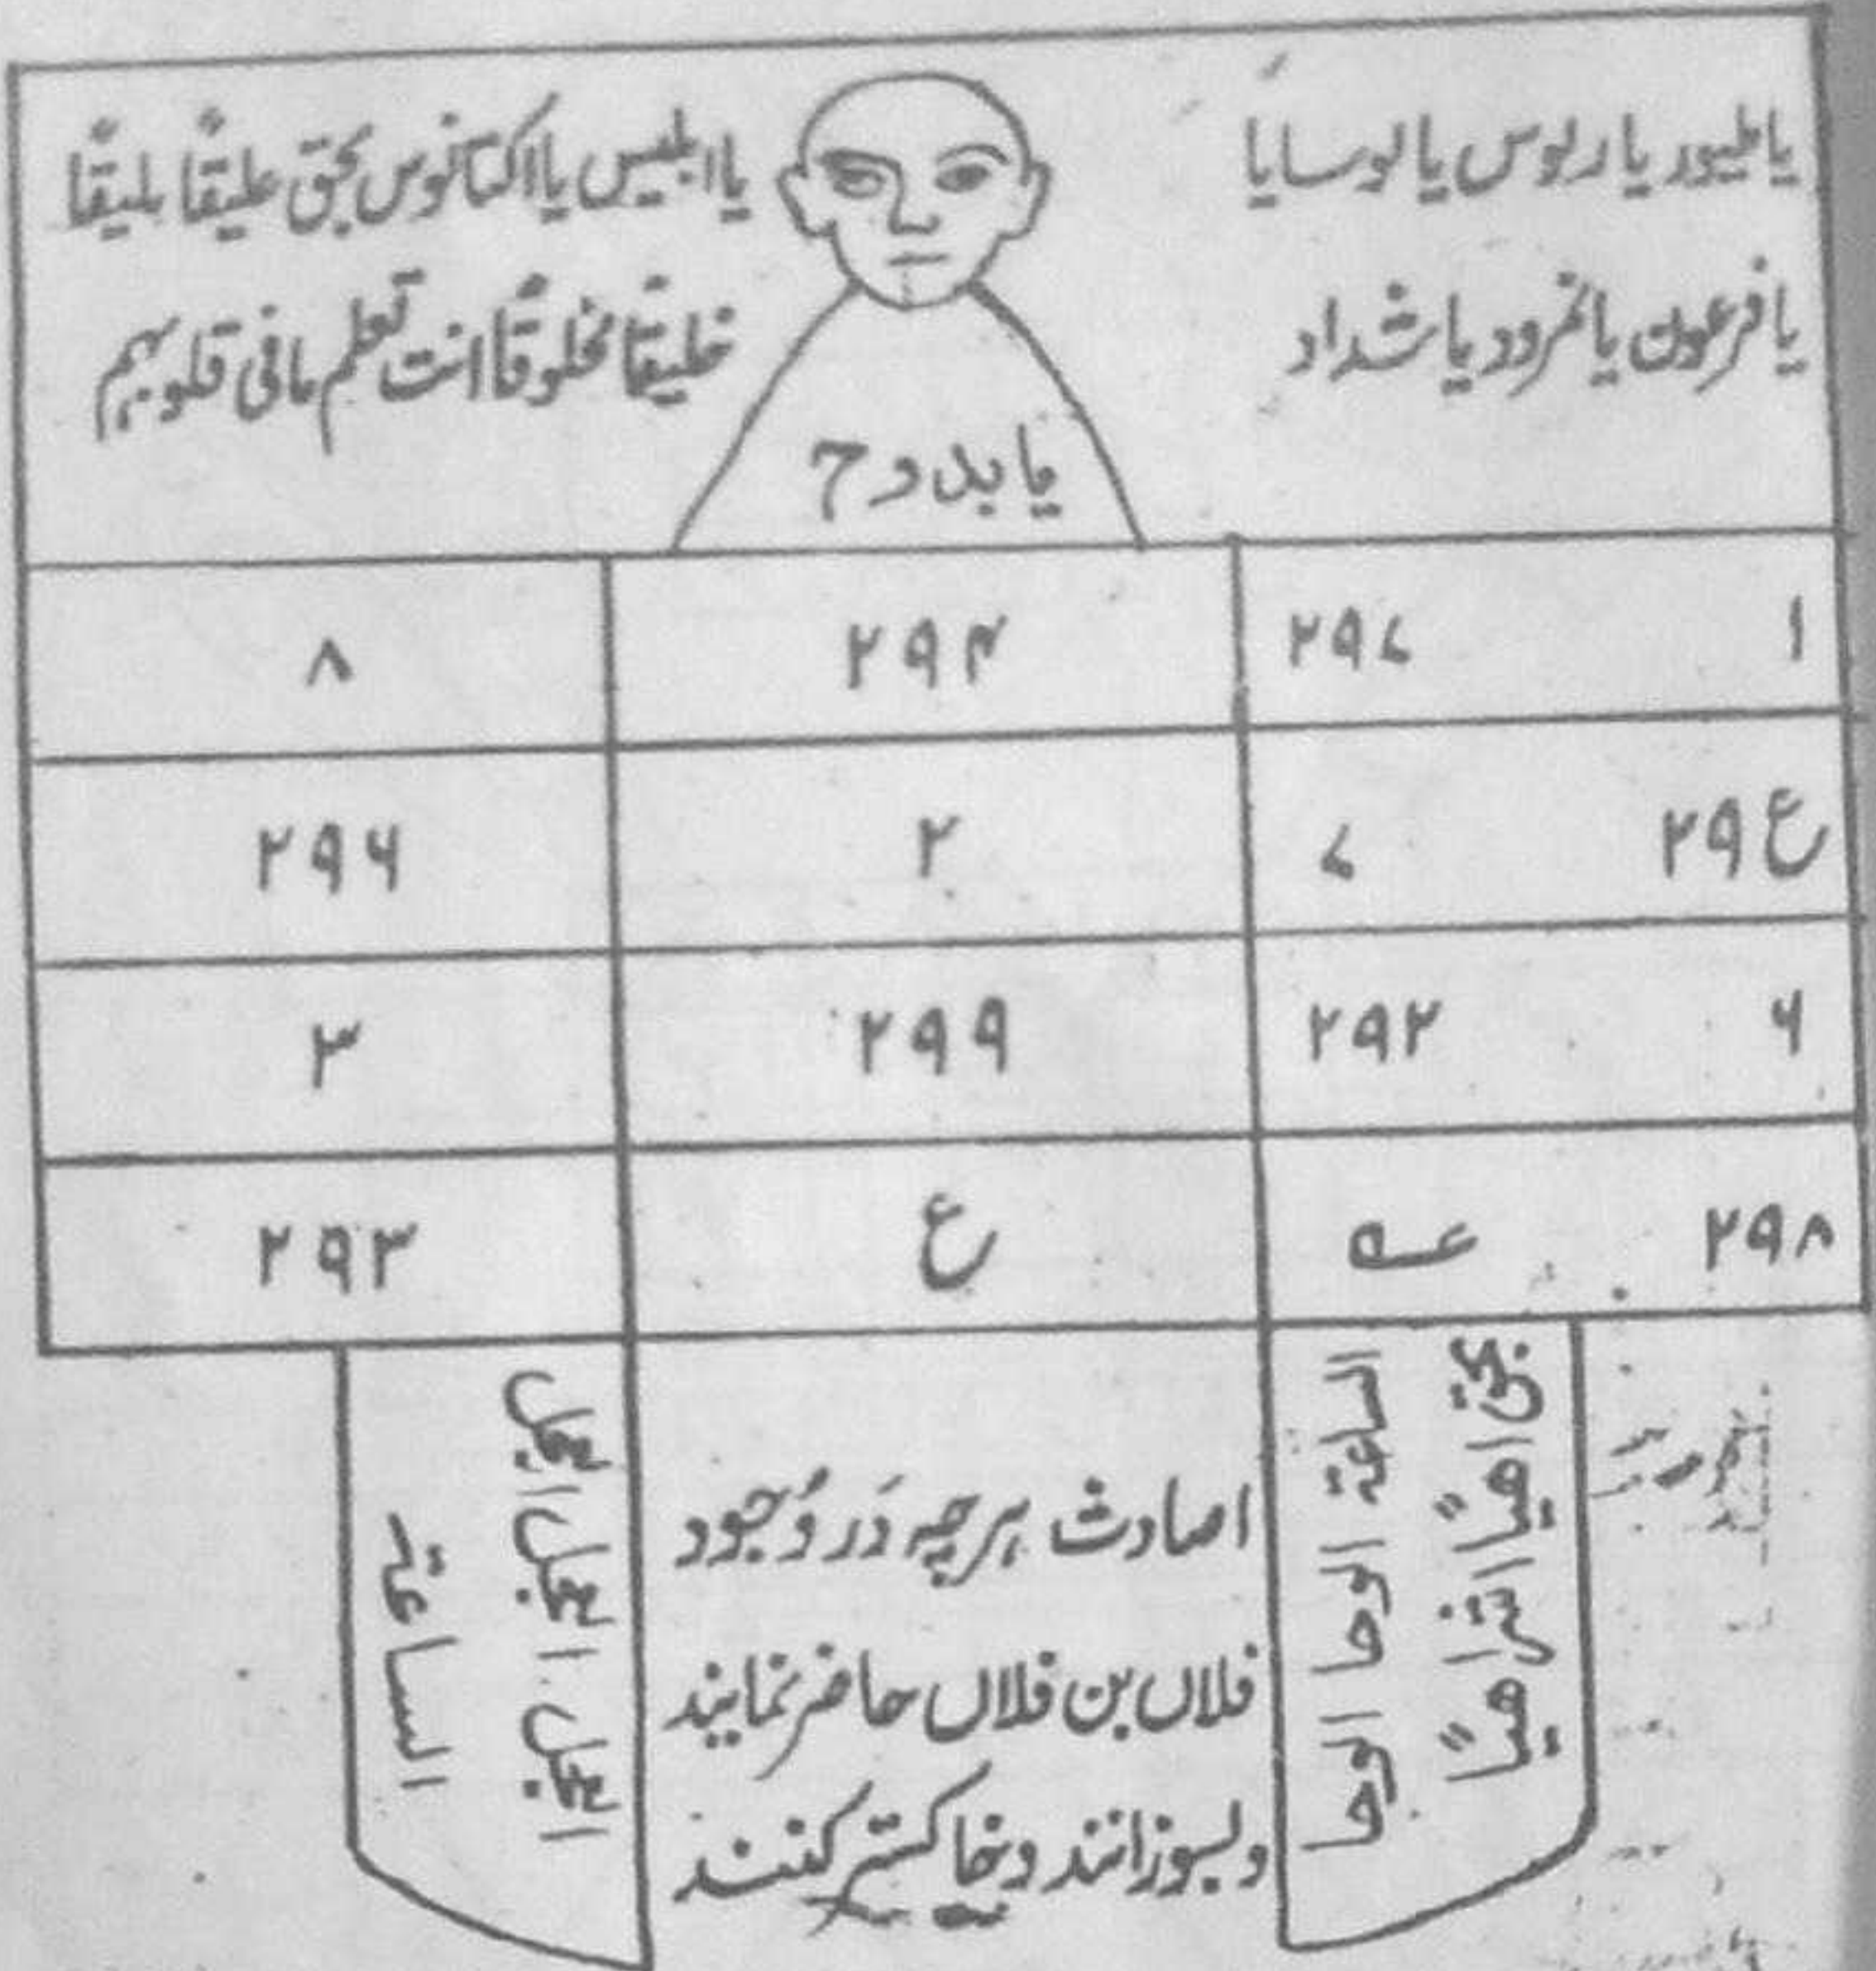 یا طیور یا ربوس یا لوسایا
یا فرعون یا نمرود یا شداد
یا ابلیس یا اکتانوس بحق علیقًا بلیقًا
خلیقًا مخلوقًا انت تعلم مافی قلوبہم
یا بدوح
۱ ۲۹۷ ۲۹۴ ۸
۲۹ع ۷ ۲ ۲۹۶
۶ ۲۹۲ ۲۹۹ ۳
۲۹۸ عہ ع ۲۹۳
بحق اھیًا اشراھیًا
الساعۃ الوحا الوحا
اصادث ہرچہ دَر وُجود
فلاں بن فلاں حاضر نمایند
وبسوزانند وخاکستر کنند
العجل العجل العجل
الساعۃ